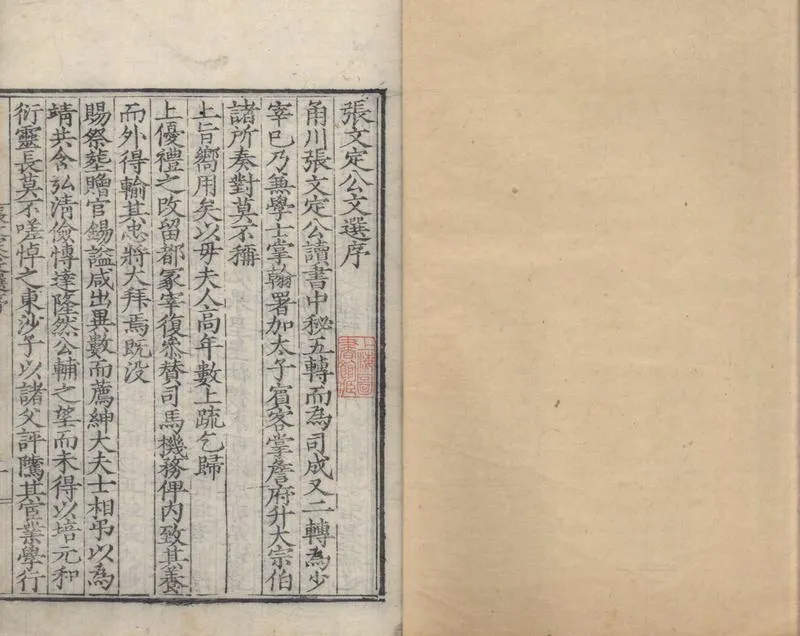 張文定公文選序
甬川張文定公讀書中秘五轉而為司成又二轉為少
宰已乃兼學士掌翰署加太子賓客掌詹府升大宗伯
諸所奏對莫不稱
上旨嚮用矣以毋夫人高年數上疏乞歸
上優禮之改留都冢宰復叅賛司馬機務俾內致其養
而外得輸其忠將大拜焉既沒
賜祭塟贈官錫謚咸出異數而薦紳大夫士相弔以為
靖共含弘清儉慱達隆然公輔之望而未得以培元和
衍靈長莫不嗟悼之東沙子以諸父評隲其官業學行
上海圖
書館藏